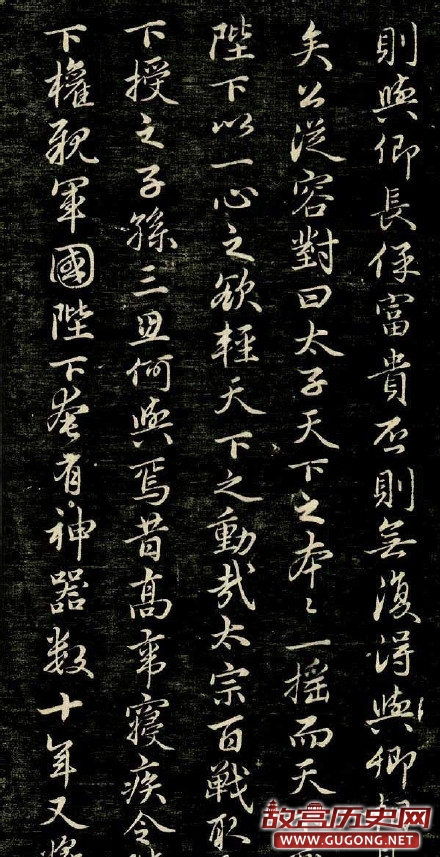 則與卿長保富貴否則無復得與卿
矣公從容對曰太子天下之本〻一搖而天
陛下以一心之欲輕天下之動哉太宗百戰取
下授之子孫三思何與焉昔高帝寢疾令
下權親軍國陛下奄有神器數十年又將
故宫历史网
WWW.GUGONG.NET